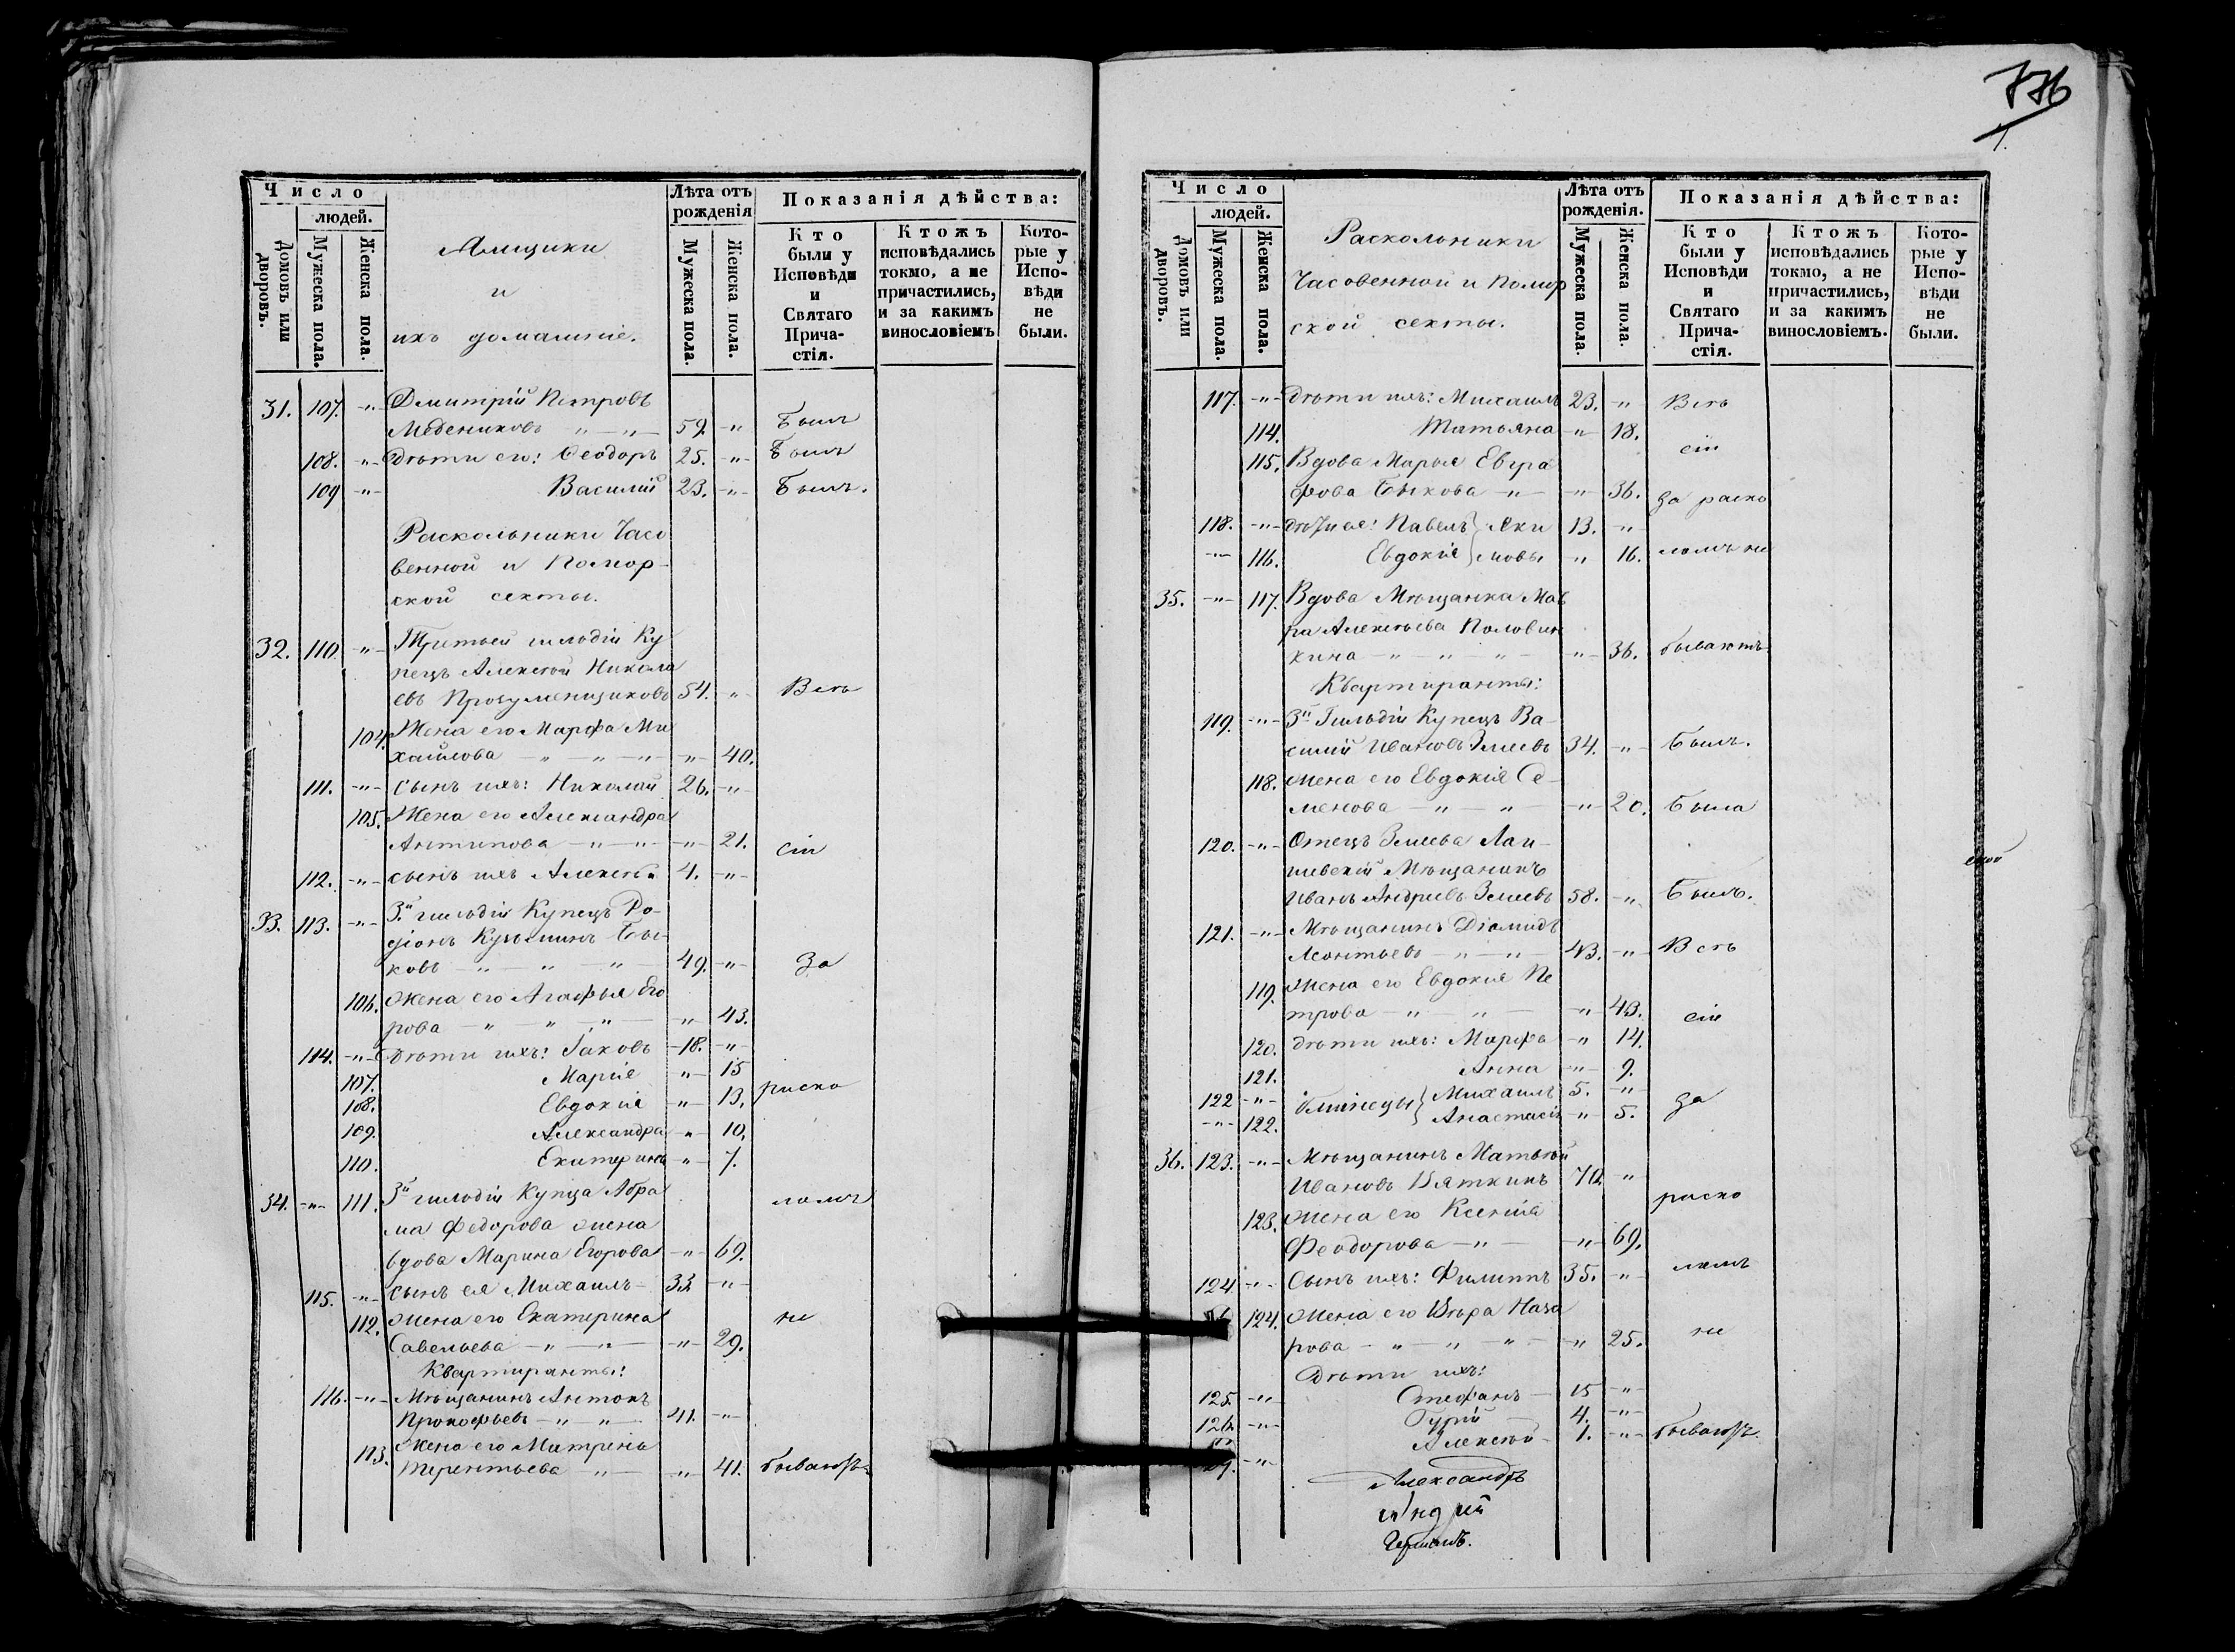 776
Число
людей.
Домовъ или дворовъ.
Мужеска пола.
Женска пола.
Ямщики
и
ихъ домашніе.
Лѣта отъ рожденія
Мужеска пола.
Женска пола.
Показанія дѣйства:
Кто были у Исповѣди и Святаго Причастія.
Ктожъ исповѣдались токмо, а не причастились, и за какимъ винословіемъ
Которые у Исповѣди не были.
31. 107. -"- Дмитрій Петровъ
Меденниковъ " " 59. " Былъ
108. " Дѣти его: Ѳеодоръ 25. " Былъ
109 " Василій 23. " Былъ.
Раскольники Часо
венной и Помор-
ской секты.
32. 110. " Третьей гильдіи Ку
пецъ Алексѣй Никола
евъ Прозументщиковъ 54. " Всѣ
104. Жена его Марфа Ми
хайлова " " " " 40.
111. " Сынъ ихъ: Николай 26. "
105. Жена его Александра
Антипова " " " 21. сіи
112. " сынъ ихъ Алексѣй 4. "
33. 113. " 3й гильдіи Купецъ Ро-
діонъ Кузьминъ Бы-
ковъ " " " 49. " За
106. Жена его Агафья Его
рова " " " " 43.
114. " Дѣти ихъ: Іаковъ 18. "
107. Марія " 15
108. Евдокія " 13. раско
109. Александра " 10.
110. Екатерина " 7.
34. " 111. 3й гильдіи Купца Абра
ма Федорова жена
вдова Марина Егорова " 69. ломъ
115. " сынъ ея Михаилъ 33 "
112. Жена его Екатерина не
Савельева " " " 29.
Квартиранты:
116. " Мѣщанинъ Антонъ
Прокофьевъ " " 41. "
113. Жена его Матрена
Терентьева " " 41. бываютъ
Число
людей.
Домовъ или дворовъ.
Мужеска пола.
Женска пола.
Раскольники
Часовенной и Помор
ской секты.
Лѣта отъ рожденія.
Мужеска пола.
Женска пола.
Показанія дѣйства:
Кто были у Исповѣди и Святаго Причастія.
Ктожъ исповѣдались токмо, а не причастились, и за какимъ винословіемъ.
Которые у Исповѣди не были.
117. " Дѣти ихъ: Михаилъ 23. " Всѣ
114. Татьяна " 18.
сіи
115. Вдова Марья Евгра
фова Быкова " " 36. за раско
118. " Дѣти ея: Павелъ } Яки 13. "
" 116. Евдокія } мовы " 16. ломъ не
35. " 117. Вдова Мѣщанка Мав
ра Алексѣева Половин
кина " " " " 36. бываютъ
Квартиранты:
119. " 3й Гильдіи Купецъ Ва-
силій Ивановъ Змеевъ 34. " Былъ.
118. Жена его Евдокія Се-
менова " " " 20. Была
120. " Отецъ Змеева Лаи-
шевскій Мѣщанинъ
Иванъ Андреевъ Змеевъ 58. " Былъ.
121. " Мѣщанинъ Діомидъ
Леонтьевъ " " 43. " Всѣ
119. Жена его Евдокія Пе
трова " " " 43. сіи
120. Дѣти ихъ: Марфа " 14.
121. Анна " 9.
122 " близнецы { Михаилъ 5. " за
" 122. Анастасія " 5.
36. 123. " Мѣщанинъ Матвѣй
Ивановъ Вяткинъ 70. "
раско
123. Жена его Ксенія
Феодорова " " 69.
ломъ
124 " Сынъ ихъ: Филиппъ 35. "
124. Жена его Вѣра Наза
рова " " " " 25. не
Дѣти ихъ:
125. " Стефанъ 15 "
126. " Гурій 4. "
" Алексѣй 1. " бываютъ.
Александръ